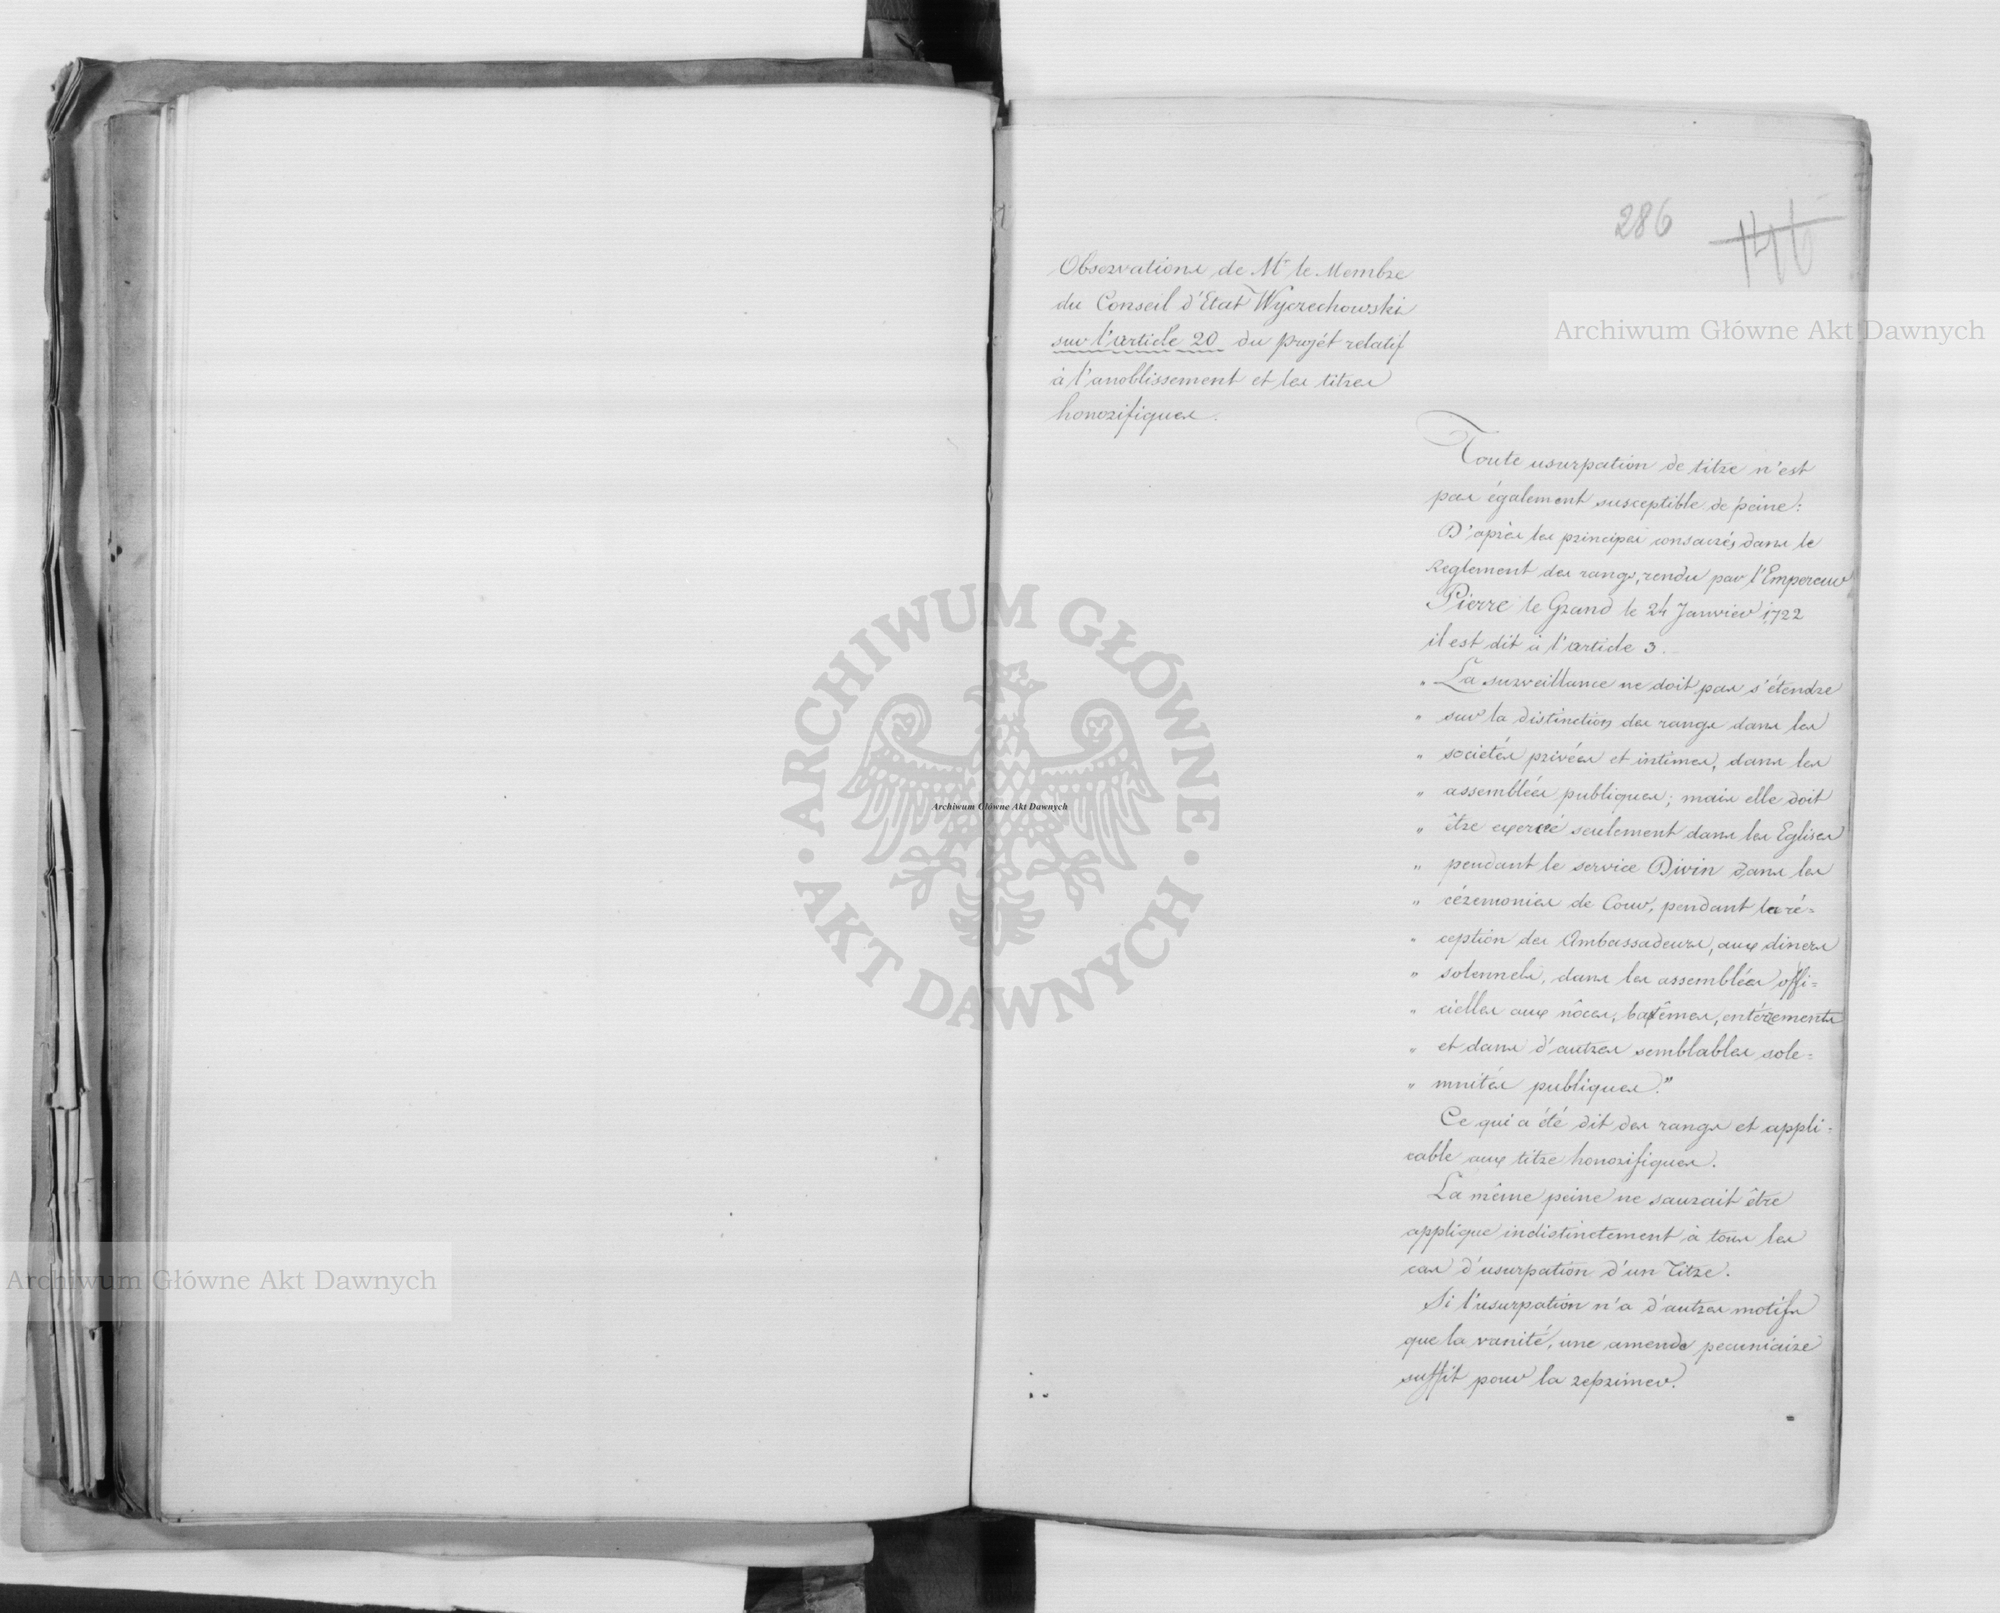 286
146
Observations de Mr le Membre
du Conseil d'Etat Wyczechowski
sur l'article 20 du projét relatif
à l'anoblissement et les titres
honorifiques.
Toute usurpation de titre n'est
pas également susceptible de peine:
D'après les principes consacrés dans le
Reglement des rangs, rendu par l'Empereur
Pierre le Grand le 24 Janvier 1722
il est dit à l'article 3.
" La surveillance ne doit pas s'étendre
" sur la distinction des rangs dans les
" societés privées et intimes, dans les
" assemblées publiques; mais elle doit
" être exercé seulement dans les Eglises
" pendant le service Divin dans les
" cérémonies de Cour, pendant la ré=
" ception des Ambassadeurs, aux diners
" solennels, dans les assemblées offi=
" cielles aux nôces, batêmes, entérements
" et dans d'autres semblables sole=
" mnités publiques."
Ce qui a été dit des rangs et appli=
cable aux titre honorifiques.
La même peine ne saurait être
applique indistinctement à tous les
cas d'usurpation d'un Titre.
Si l'usurpation n'a d'autres motifs
que la vanité, une amende pecuniaire
suffit pour la reprimer.
Archiwum Główne Akt Dawnych
Archiwum Główne Akt Dawnych
Archiwum Główne Akt Dawnych
ARCHIWUM GŁÓWNE
AKT DAWNYCH